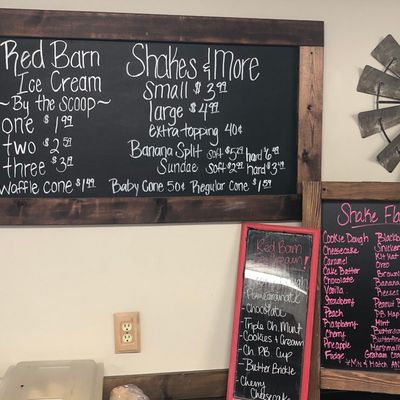 Red Barn
Ice Cream
~By the scoop~
one $1.99
two $2.59
three $3.19
Waffle cone $1.49
Shakes & More
Small $3.99
large $4.99
extra topping 40¢
Banana Split soft $5.29 hard $6.99
Sundae soft $2.99 hard $3.49
Baby Cone 50¢ Regular Cone $1.59
Red Barn
- Pomegranate
- Chocolate
- Triple Ch. Mint
- Cookies & Cream
- Ch. P.B. Cup
- Butter Brickle
- Cherry
Cheesecake
Shake Fla
Cookie Dough
Snickers
Caramel
Cake Batter
Chocolate
Vanilla
Strawberry
Peach
Raspberry
Cherry
Pineapple
Fudge
Kit Kat
Oreo
Brown
Banana
Reeses
Peanut
P.B.
Mint
Butter
Marshmal
Graham